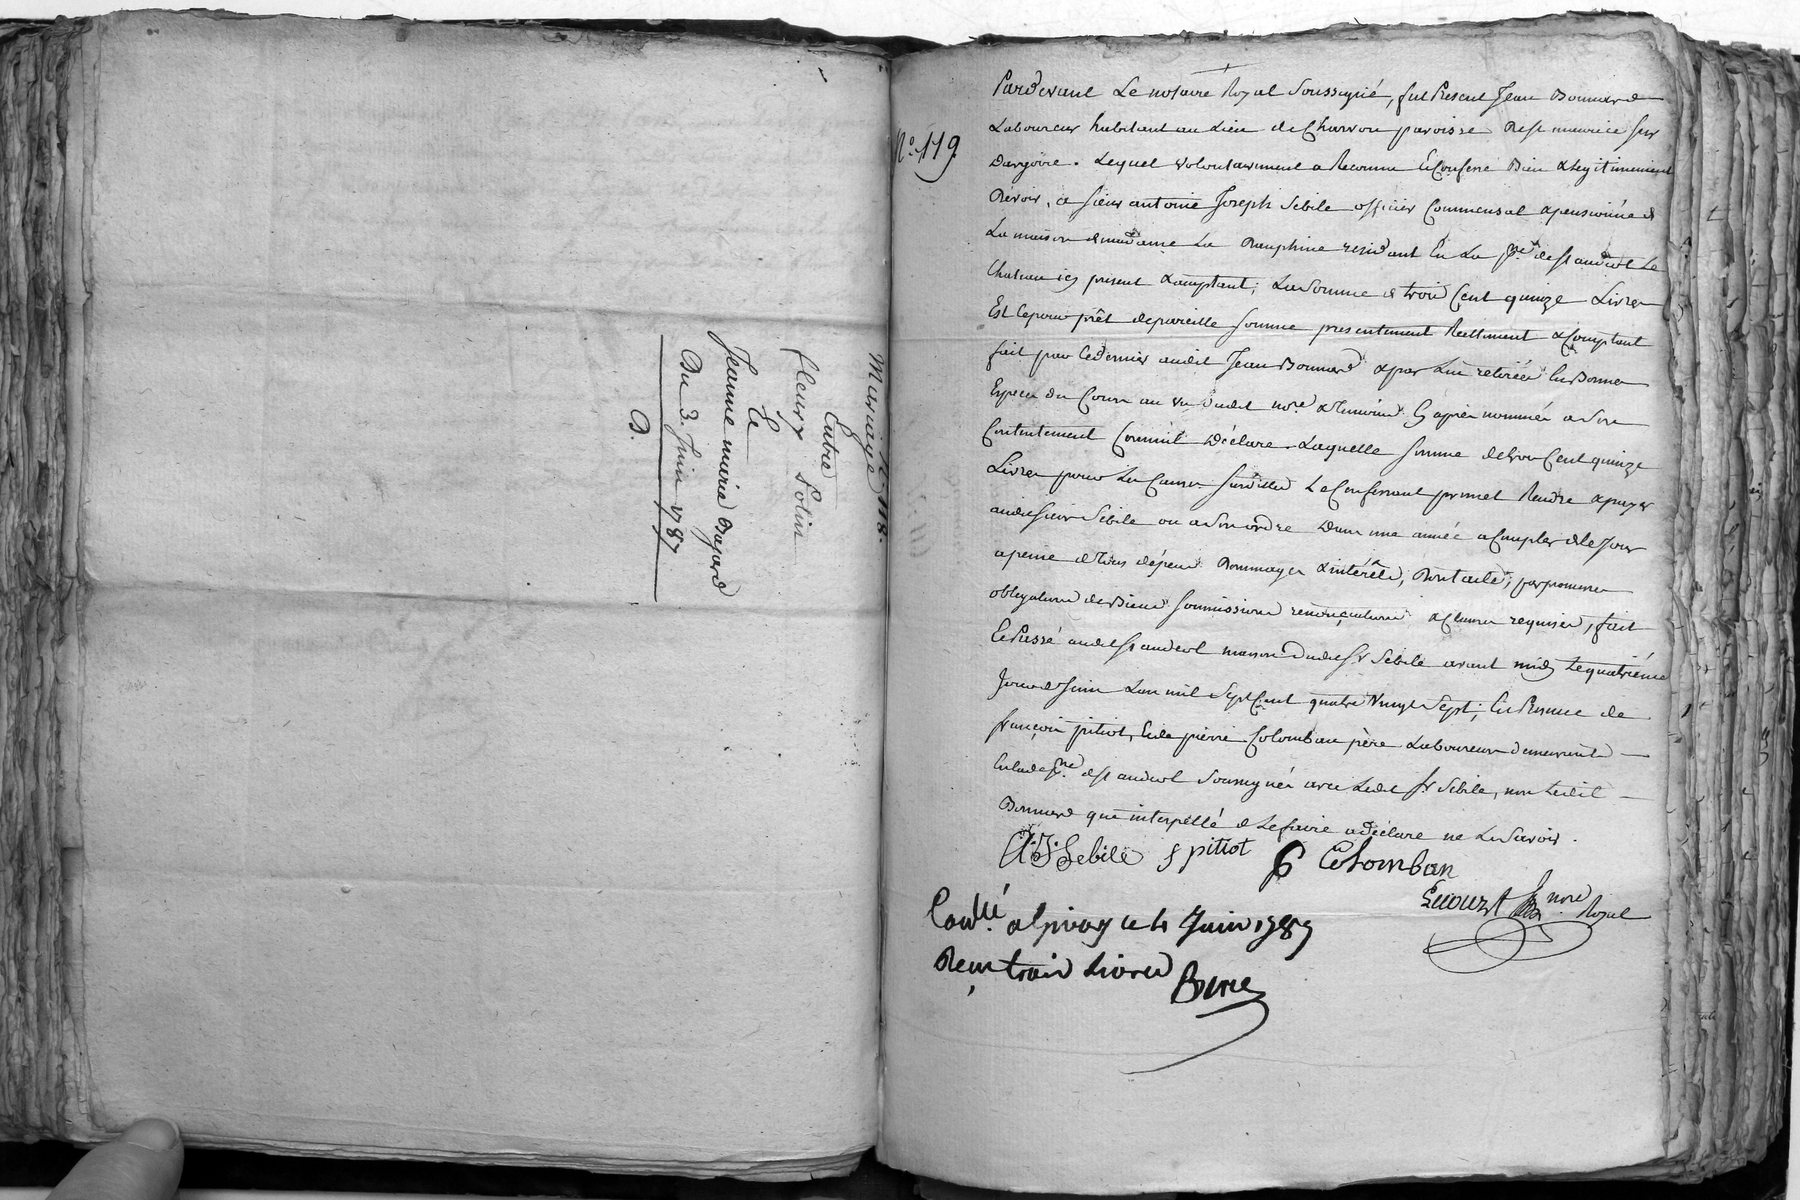 Mariage 118.
Entre
fleury Lotin
Et
Jeanne marie Bajard
Du 3. Juin 1787
D.
N.° 119
Pardevant Le notaire Royal Soussigné, fut Présent Jean Bonnard
Laboureur habitant au Lieu de Charvou paroisse De st maurice sur
Dargoire. Lequel volontairement a Reconnu Et Confessé Bien & Légitimement
Devoir, a sieur antoine Joseph Sebile officier Commensal & pensionné de
La maison de madame La Dauphine residant En La pse. de st andéol Le
Chateau icy present & acceptant, La Somme de trois Cent quinze Livres
Est Ce pour prêt de pareille somme presentement Réellement & Comptant
fait par Ce dernier audit Jean Bonnard & par Lui retirée En Bonnes
Espèces du Cours au vu dudit nore. & témoins Cy après nommés a son
Contentement Comme il Déclare. Laquelle somme de trois Cent quinze
Livres pour Les Causes susdittes Le Confessant promet Rendre & payer
audit sieur Sebile ou a son ordre Dans une année a Compter de Ce Jour
a peine de tous dépens Dommages & intérêts, Dont acte, par promesses
obligations de Biens soumissions renonciations & Clauses requises, fait
Et Passé audit st andéol maison dudit sr Sebile avant midy Le quatrième
Jour de Juin L'an mil Sept Cent quatre Vingt Sept, En Présence de
françois pitiot, Et de pierre Colomban père Laboureurs demeurants
En lade. pse. de st andéol Soussignés avec Ledit sr Sebile, non Ledit
Bonnard que interpellé de Le faire a déclaré ne Le Savoir.
A. J. Sebile f pitiot P Colomban
nore. Royal
Conllé. a Givors ce 4 Juin 1787
Reçu trois Livres